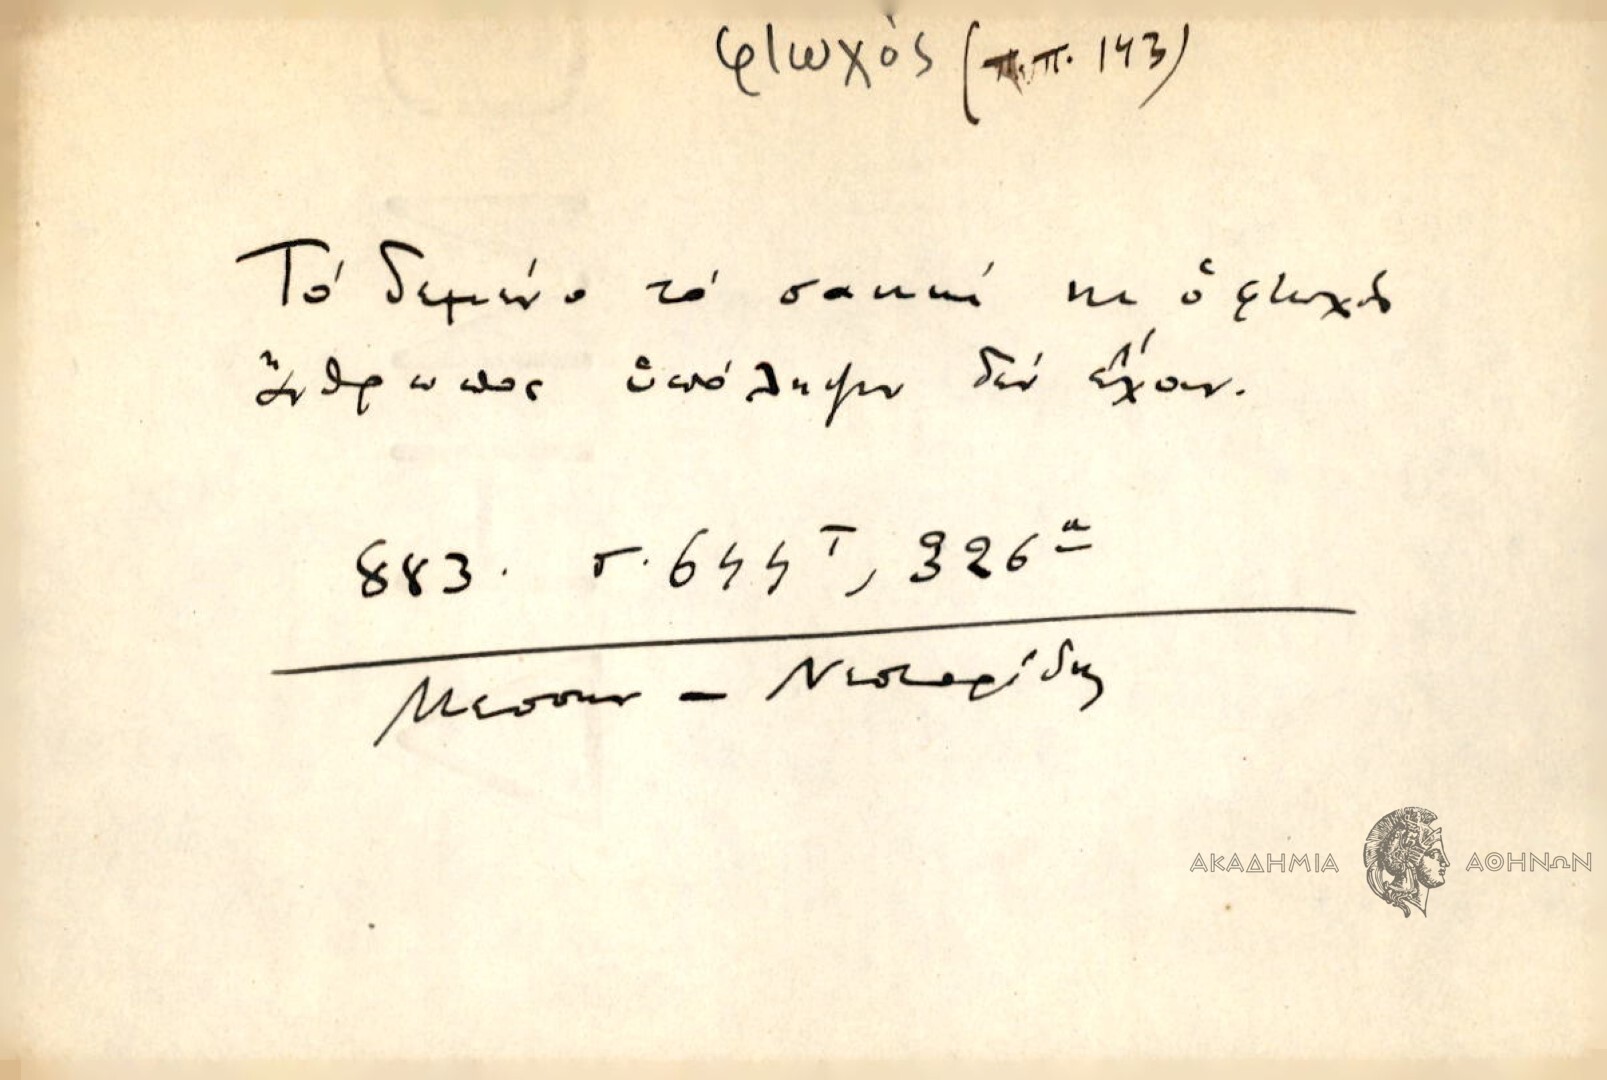 φτωχός (π.π. 143)
Τό δεμένο τό σακκί κι ὁ φτωχός
ἄνθρωπος ὑπόληψιν δέν ἔχουν.
883. σ. 644 Τ, 326α
Μεσσην - Νεστορίδης
ΑΚΑΔΗΜΙΑ ΑΘΗΝΩΝ